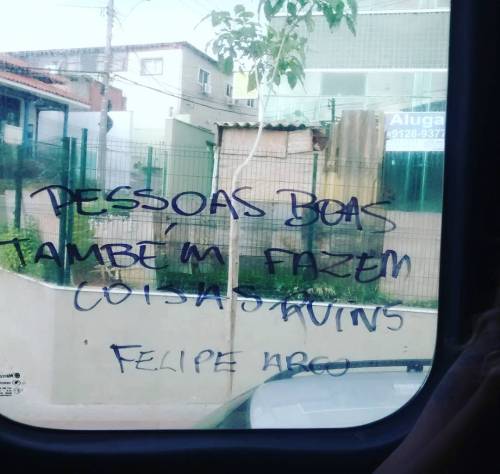 Aluga
9128-9377
PESSOAS BOAS
TAMBÉM FAZEM
COISAS RUINS
FELIPE ARCO